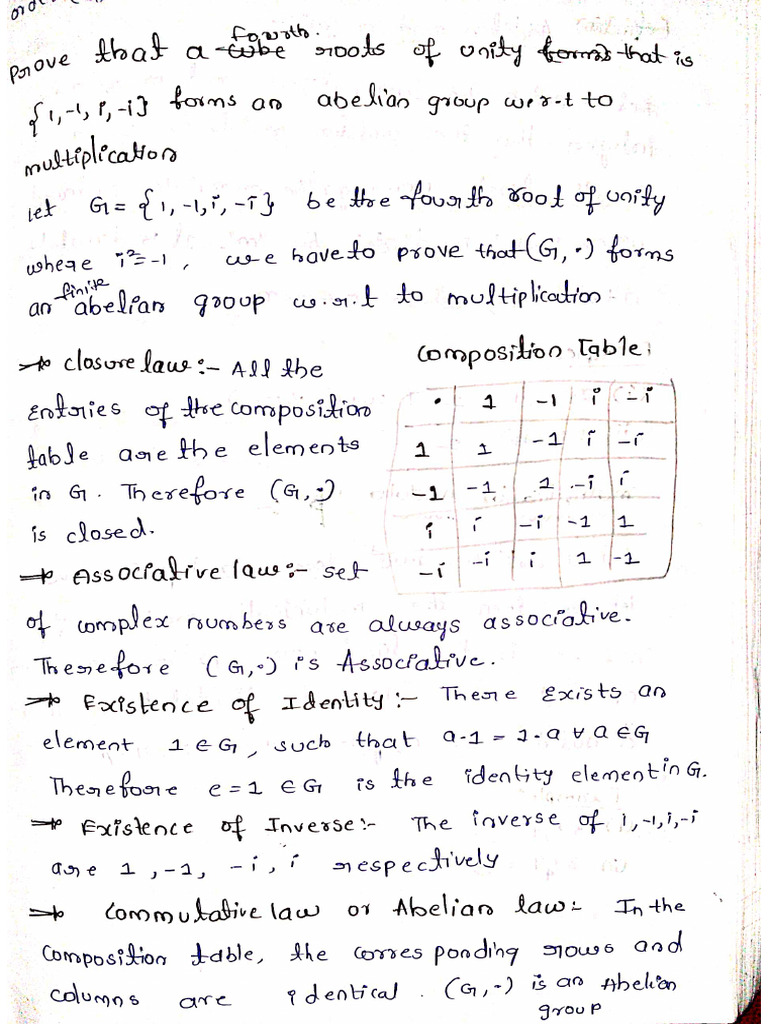 Prove that a fourth roots of unity that is
{1,-1, i, -i} forms an abelian group w.r.t to
multiplication
let G = {1, -1, i, -i} be the fourth root of unity
where i²=-1, we have to prove that (G, ·) forms
an finite abelian group w.r.t to multiplication
→ closure law:- All the
entries of the composition
table are the elements
in G. Therefore (G, ·)
is closed.
Composition Table:
· 1 -1 i -i
1 1 -1 i -i
-1 -1 1 -i i
i i -i -1 1
-i -i i 1 -1
→ Associative law:- set
of complex numbers are always associative.
Therefore (G, ·) is Associative.
→ Existence of Identity:- There exists an
element 1 ∈ G, such that a·1 = 1·a ∀ a ∈ G
Therefore e = 1 ∈ G is the identity element in G.
→ Existence of Inverse:- The inverse of 1, -1, i, -i
are 1, -1, -i, i respectively
→ Commutative law or Abelian law:- In the
composition table, the corresponding rows and
columns are identical. (G, ·) is an Abelian
group